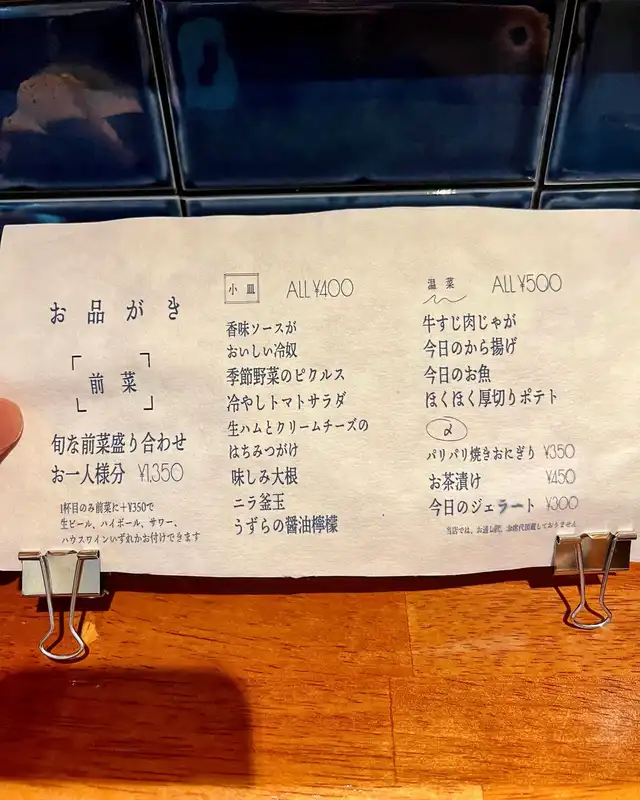 お品がき
前菜
旬な前菜盛り合わせ
お一人様分 ¥1,350
1杯目のみ前菜に+¥350で
生ビール、ハイボール、サワー、
ハウスワインいずれかお付けできます
小皿 ALL ¥400
香味ソースが
おいしい冷奴
季節野菜のピクルス
冷やしトマトサラダ
生ハムとクリームチーズの
はちみつがけ
味しみ大根
ニラ釜玉
うずらの醤油檸檬
温菜 ALL ¥500
牛すじ肉じゃが
今日のから揚げ
今日のお魚
ほくほく厚切りポテト
〆
パリパリ焼きおにぎり ¥350
お茶漬け ¥450
今日のジェラート ¥300
当店では、お通し代、お席代頂戴しておりません